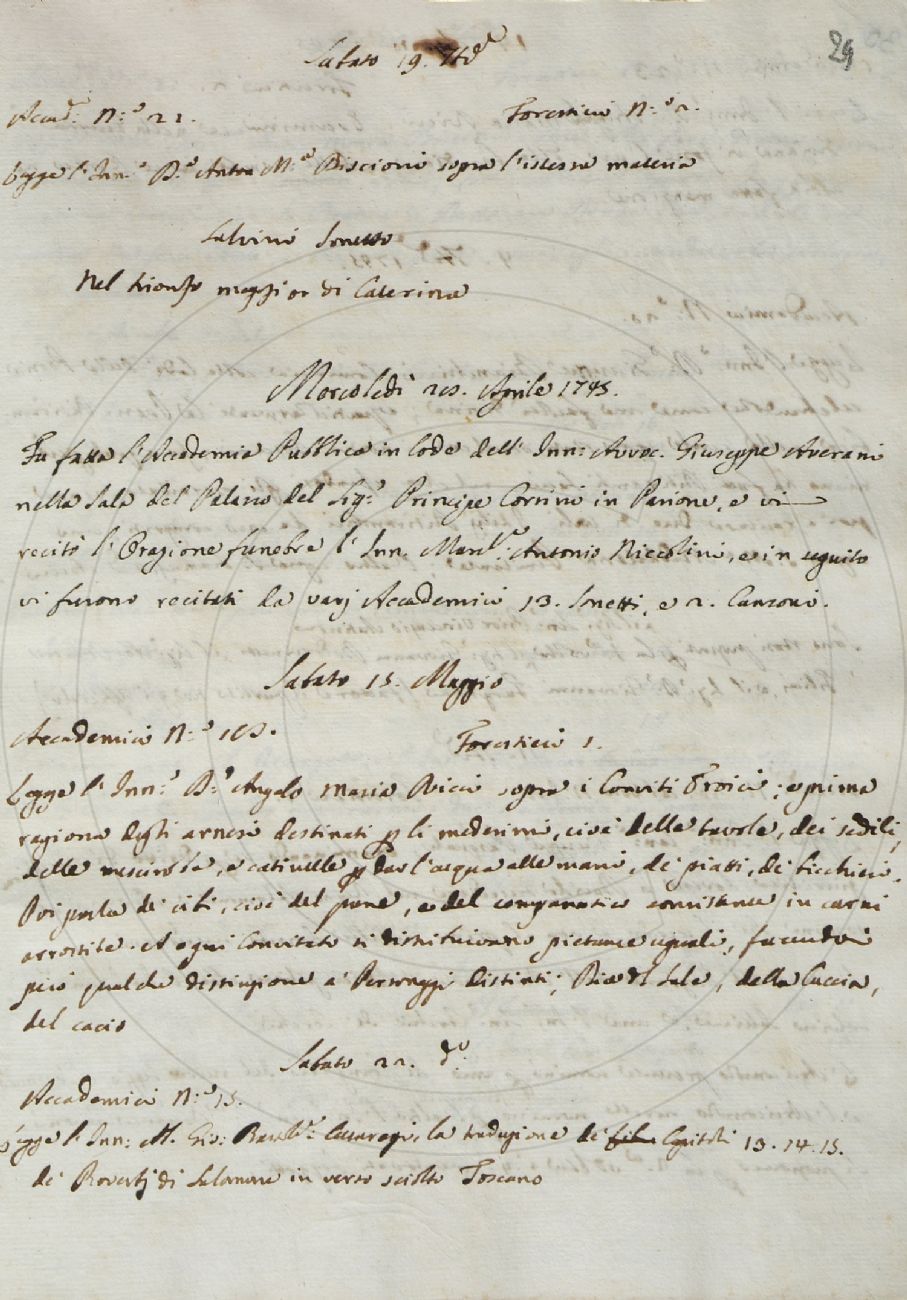 29
Sabato 19. Id.
Accad.i N.o 22. Forestieri N.o 2.
Legge l'Inn.o D.e Anton M.a Biscioni sopra l'istessa materia
Salvini Sonetto
Nel trionfo maggior di Caterina
Mercoledì 20. Aprile 1745.
Fu fatta l'Accademia Pubblica in lode dell' Inn: Avvoc. Giuseppe Averani
nella Sala del Palazzo del Sig.r Principe Corsini in Parione, e vi
recitò l'Orazione funebre l'Inn. March.e Antonio Niccolini, e in seguito
vi furono recitati da varj Accademici 13. Sonetti, e 2. Canzoni.
Sabato 15. Maggio
Accademici N.o Forestieri 1.
Legge l'Inn.o D.e Angelo Maria Ricci sopra i Conviti Eroici; e prima
ragiona degli arnesi destinati p li medesimi, cioè delle tavole, dei sedili,
delle mesciroba, e catinelle p dar l'acqua alle mani, de' piatti, de' bicchieri.
Poi parla de' cibi, cioè del pane, e del companatico consistente in carni
arrostite. A ogni Convitato si distribuivano pietanze uguali, facendosi
però qualche distinzione a' Personaggi distinti; del Sale, della Caccia,
del cacio
Sabato 22. d.o
Accademici N.o 15.
Legge l'Inn: A. Gio: Bartol.o Casaregi, la traduzione de' Capitoli 13. 14. 15.
de' Proverbj di Salomone in verso sciolto Toscano